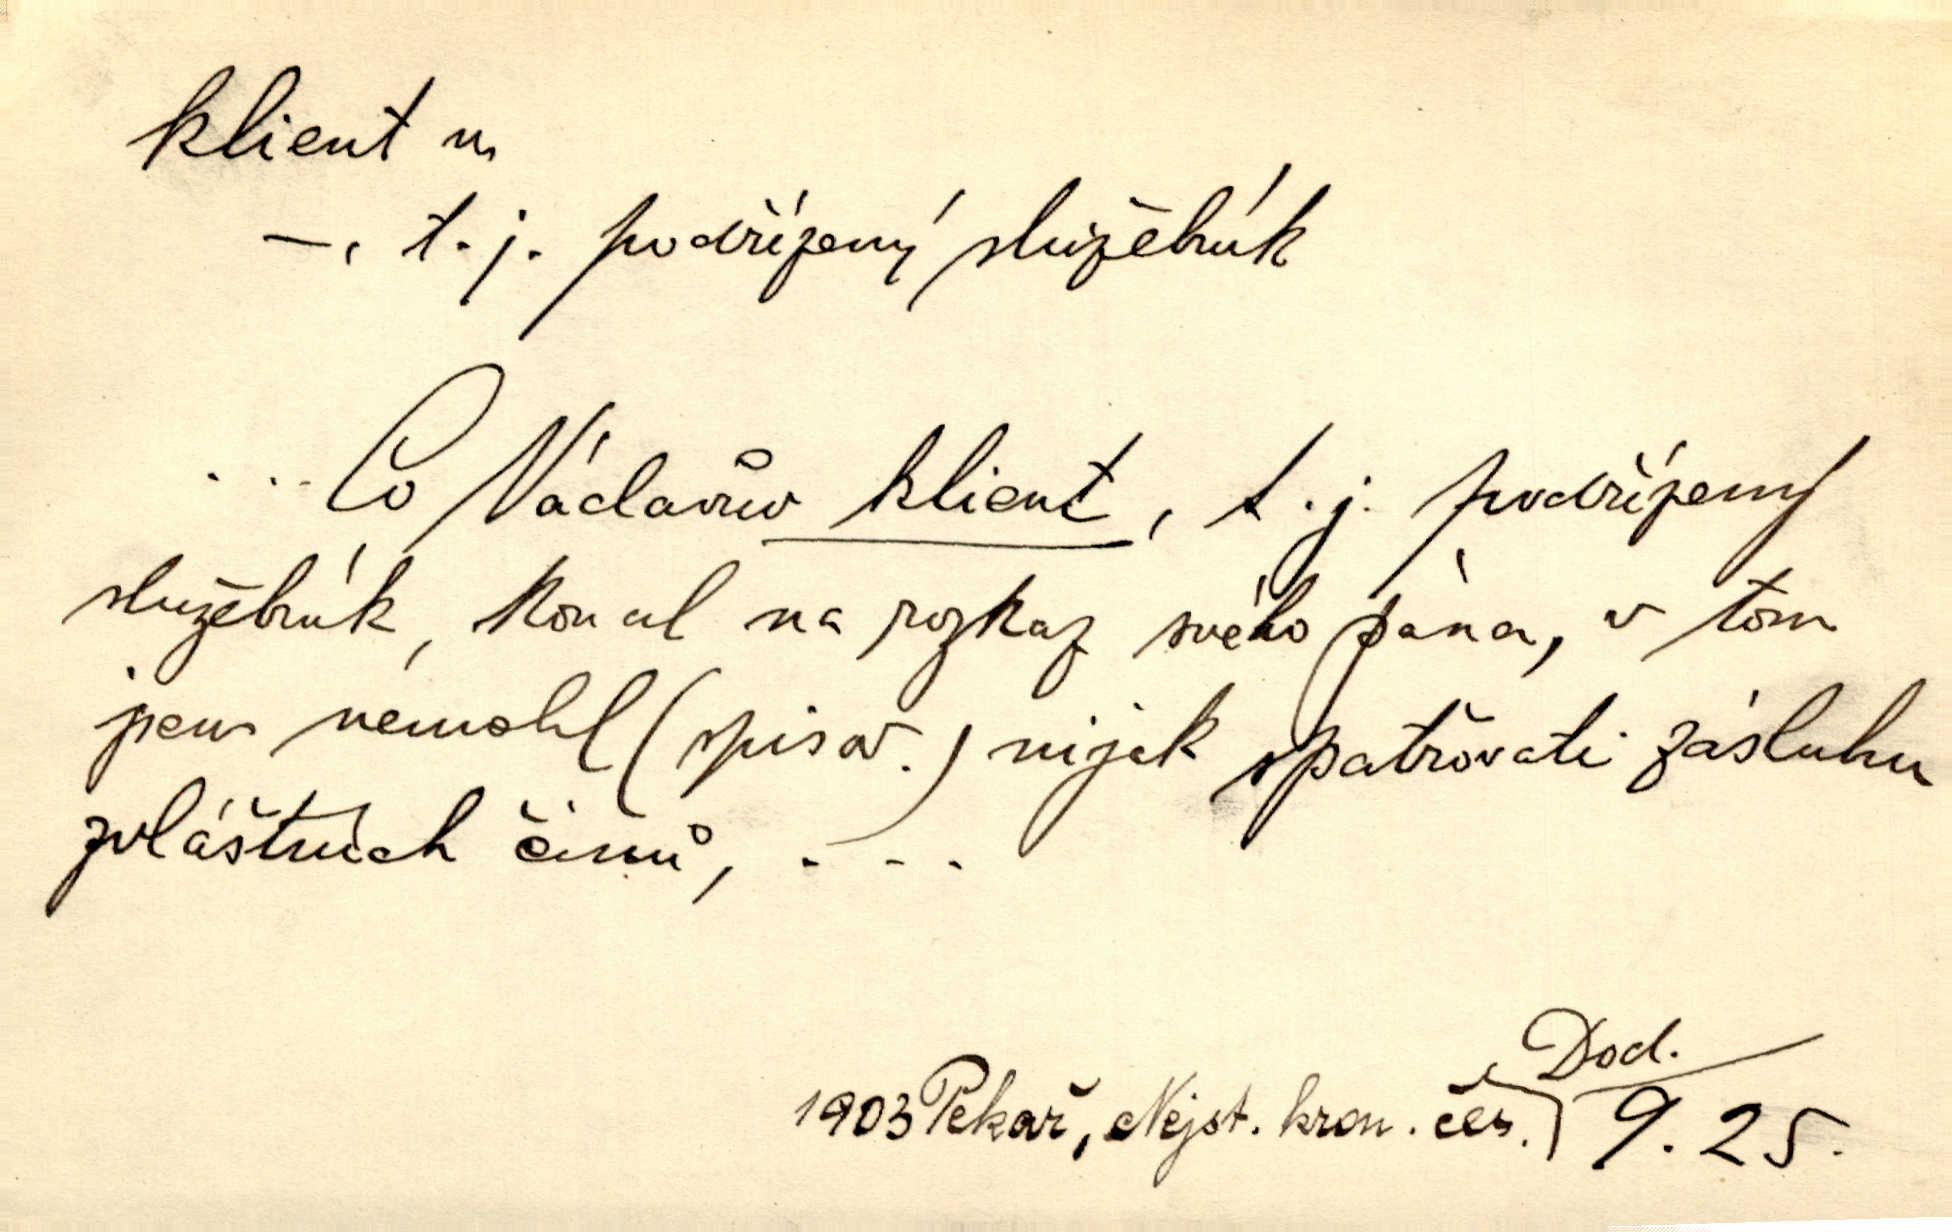 klient m
—, t. j. podřízený služebník
... Co Václavův klient, t. j. podřízený
služebník, konal na rozkaz svého pána, v tom
jsem nemohl (spisov.) nijak spatřovati zásluhu
zvláštních činů, ...
Dod.
1903 Pekař, Nejst. kron. čes. 9. 25.